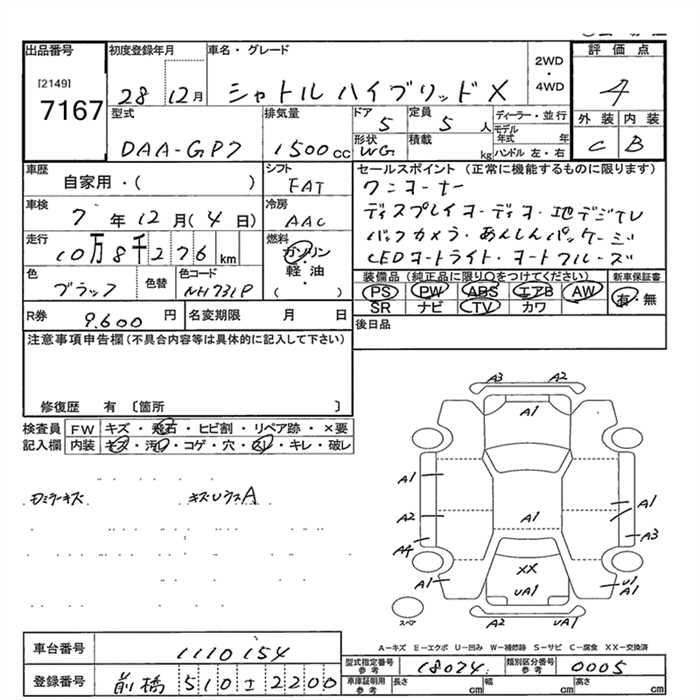 出品番号
[2149]
7167
初度登録年月
28 12月
車名・グレード
シャトル ハイブリッド X
2WD
・
4WD
評価点
4
外装 内装
C B
型式
DAA-GP7
排気量
1500cc
ドア
5
定員
5 人
ディーラー・並行
形状
WG
積載
kg
モデル
年式 年
ハンドル 左・右
車歴
自家用・( )
シフト
FAT
車検
7 年 12月(4日)
冷房
AAC
走行
10万8千276 km
燃料
ガソリン
・
軽油
・
( )
色
ブラック
色替
色コード
NH731P
セールスポイント (正常に機能するものに限ります)
ワンオーナー
ディスプレイオーディオ・地デジTV
バックカメラ・あんしんパッケージ
LEDオートライト・オートクルーズ
装備品(純正品に限り○をつけてください)
新車保証書
PS PW ABS エアB AW
有・無
SR ナビ TV カワ
後日品
R券
9.600 円
名変期限 月 日
注意事項申告欄(不具合内容等は具体的に記入して下さい)
修復歴 有 〔箇所 〕
検査員
記入欄
FW キズ・飛石・ヒビ割・リペア跡・×要
内装 キズ・汚れ・コゲ・穴・スレ・キレ・破レ
ロミラーキズ
A
A3 A2
A1
A1
A1
A2
A1
A3
A4
XX
A1
UA1
U1
A1
A2 UA1
スペア
A-キズ E-エクボ U-凹み W-補修跡 S-サビ C-腐食 XX-交換済
車台番号
1110154
登録番号
前橋 510 2200
型式指定番号
参考
18024
類別区分番号
参考
0005
車庫証明用
参考
長さ cm
幅 cm
高さ cm